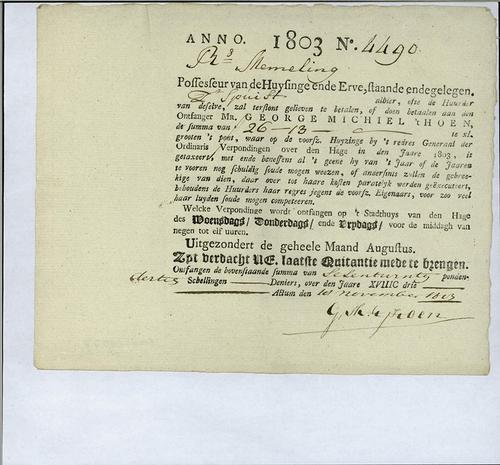 ANNO. 1803 No. 4490.
Memeling
Possesseur van de Huysinge ende Erve, staande ende gelegen.
Spuist alhier, ofte de Huurder
van deselve, zal terstont gelieven te betalen, of doen betaalen aan den
Ontfanger Mr. GEORGE MICHIEL 'tHOEN,
de somma van 26-13- te xl.
grooten 't pont, waar op de voorsz. Huyzinge by 't redres Generaal der
Ordinaris Verpondingen over den Hage in den Jaare 1803, is
getaxeert, met ende beneffens al 't geene hy van 't Jaar of de Jaaren
te vooren nog schuldig soude mogen weezen, of andersints zullen de gebree-
kige van dien, daar over tot haare kosten paratelyk werden geëxecuteert,
behoudens de Huurders haar regres jegens de voorsz. Eigenaars, voor zoo veel
haar luyden soude mogen competeeren.
Welcke Verpondinge wordt ontfangen op 't Stadthuys van den Hage
des Woensdags/ Donderdags/ ende Vrydags/ voor de middagh van
negen tot elf uuren.
Uitgezondert de geheele Maand Augustus.
Zyt verdacht UE. laatste Quitantie mede te brengen.
Ontfangen de bovenstaande somma van Sesentwintig ponden-
dertien Schellingen Deniers, over den Jaare XVIIIC drie
Actum den 1st november 1803
G. M. 't Hoen